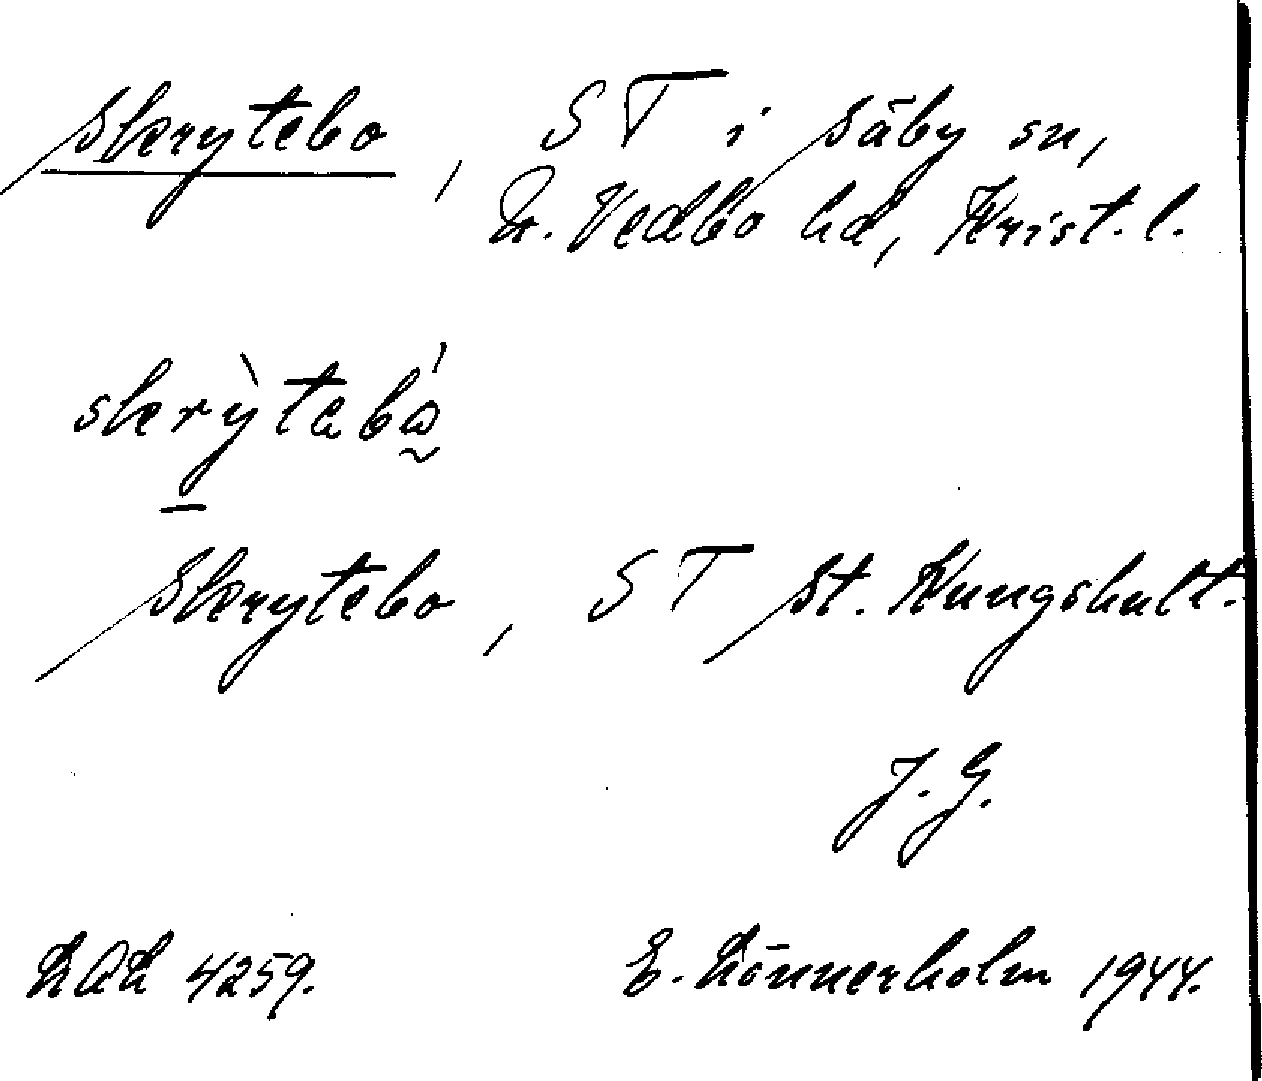 Skrytebo, ST i Säby sn,
N. Vedbo hd, Krist. l.
skrỳtabó
Skrytebo, ST St. Kungshult.
J. G.
4259. E. Lönnerholm 1944.